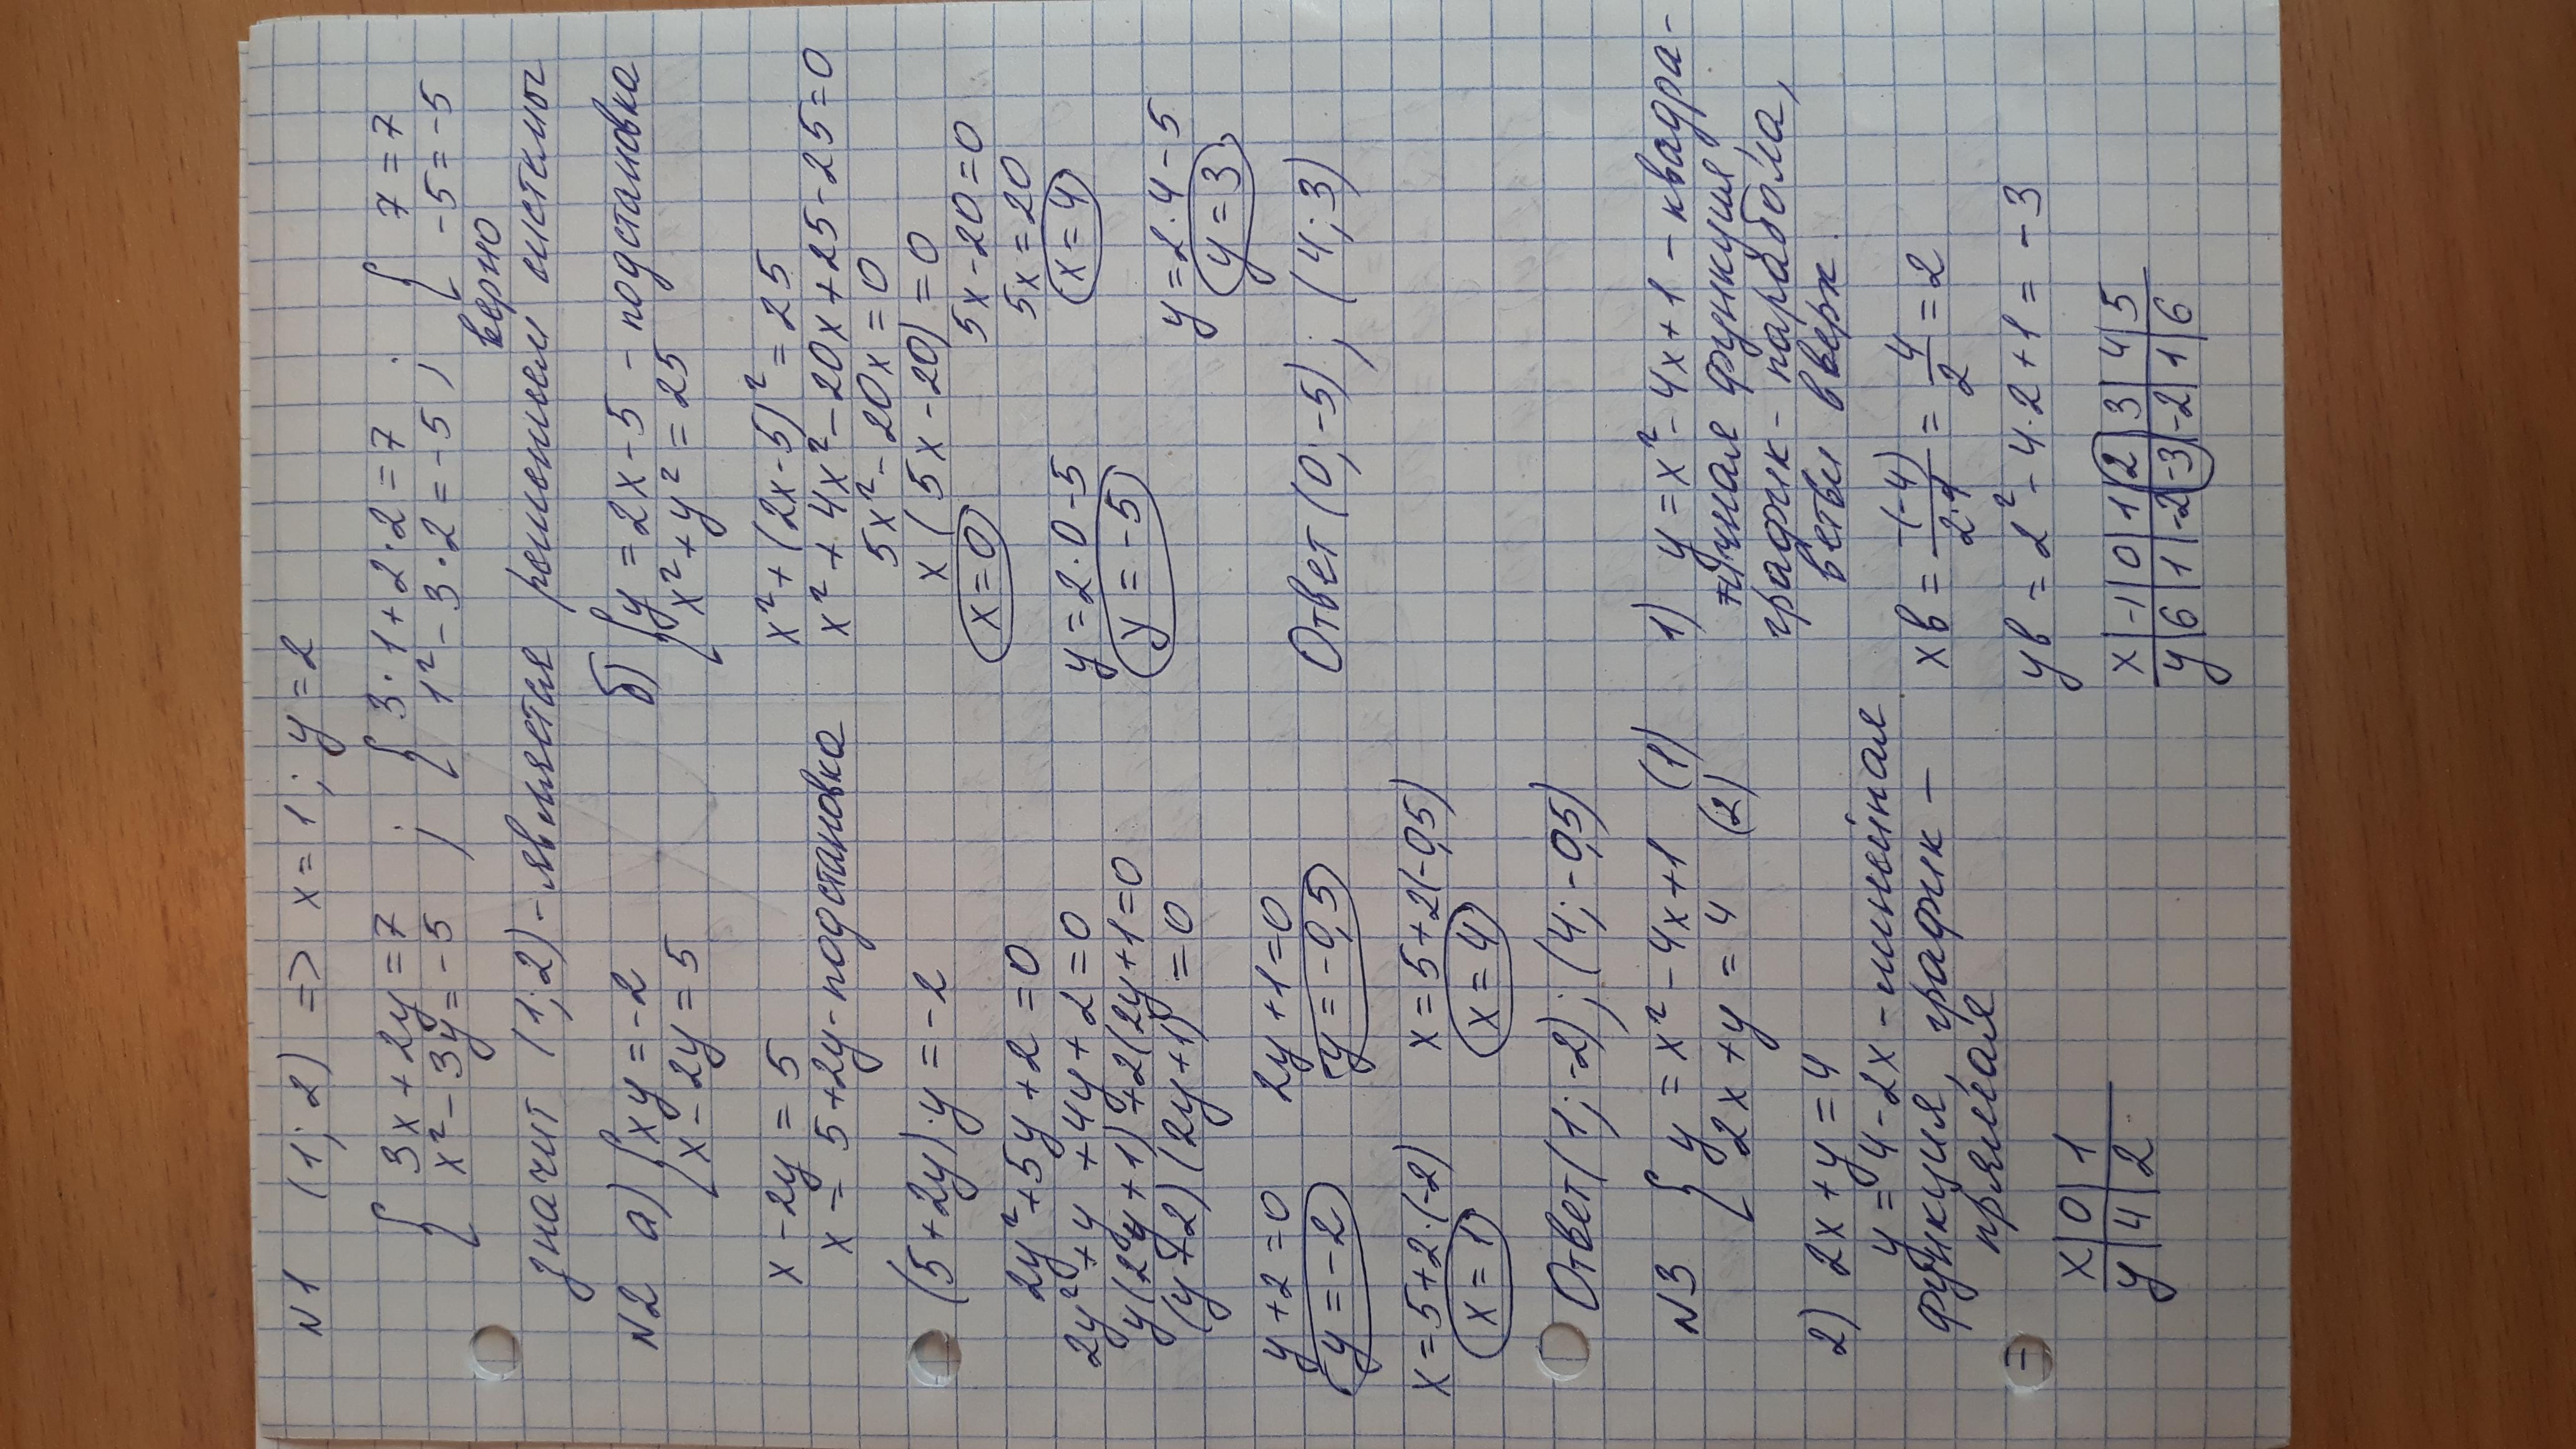 N1 (1; 2) => x = 1; y = 2
{ 3x + 2y = 7 ; { 3·1 + 2·2 = 7 ; { 7 = 7
x² - 3y = -5 1² - 3·2 = -5 -5 = -5
верно
значит (1; 2) - является решением системы
N2 а) { xy = -2
x - 2y = 5
x - 2y = 5
x = 5 + 2y - подстановка
(5 + 2y)·y = -2
2y² + 5y + 2 = 0
2y² + y + 4y + 2 = 0
y(2y + 1) + 2(2y + 1 = 0
(y + 2)(2y + 1) = 0
y + 2 = 0 2y + 1 = 0
y = -2 y = -0,5
x = 5 + 2·(-2) x = 5 + 2(-0,5)
x = 1 x = 4
Ответ (1; -2); (4; -0,5)
б) { y = 2x - 5 - подстановка
x² + y² = 25
x² + (2x - 5)² = 25
x² + 4x² - 20x + 25 - 25 = 0
5x² - 20x = 0
x(5x - 20) = 0
x = 0 5x - 20 = 0
5x = 20
x = 4
y = 2·0 - 5 y = 2·4 - 5
y = -5 y = 3
Ответ (0; -5); (4; 3)
N3 { y = x² - 4x + 1 (1)
2x + y = 4 (2)
1) y = x² - 4x + 1 - квадра-
тичная функция,
график - парабола,
ветви вверх.
xв = -(-4)/2·1 = 4/2 = 2
yв = 2² - 4·2 + 1 = -3
x | -1 | 0 | 1 | 2 | 3 | 4 | 5
y | 6 | 1 | -2 | -3 | -2 | 1 | 6
2) 2x + y = 4
y = 4 - 2x - линейная
функция, график -
прямая
=
x | 0 | 1
y | 4 | 2